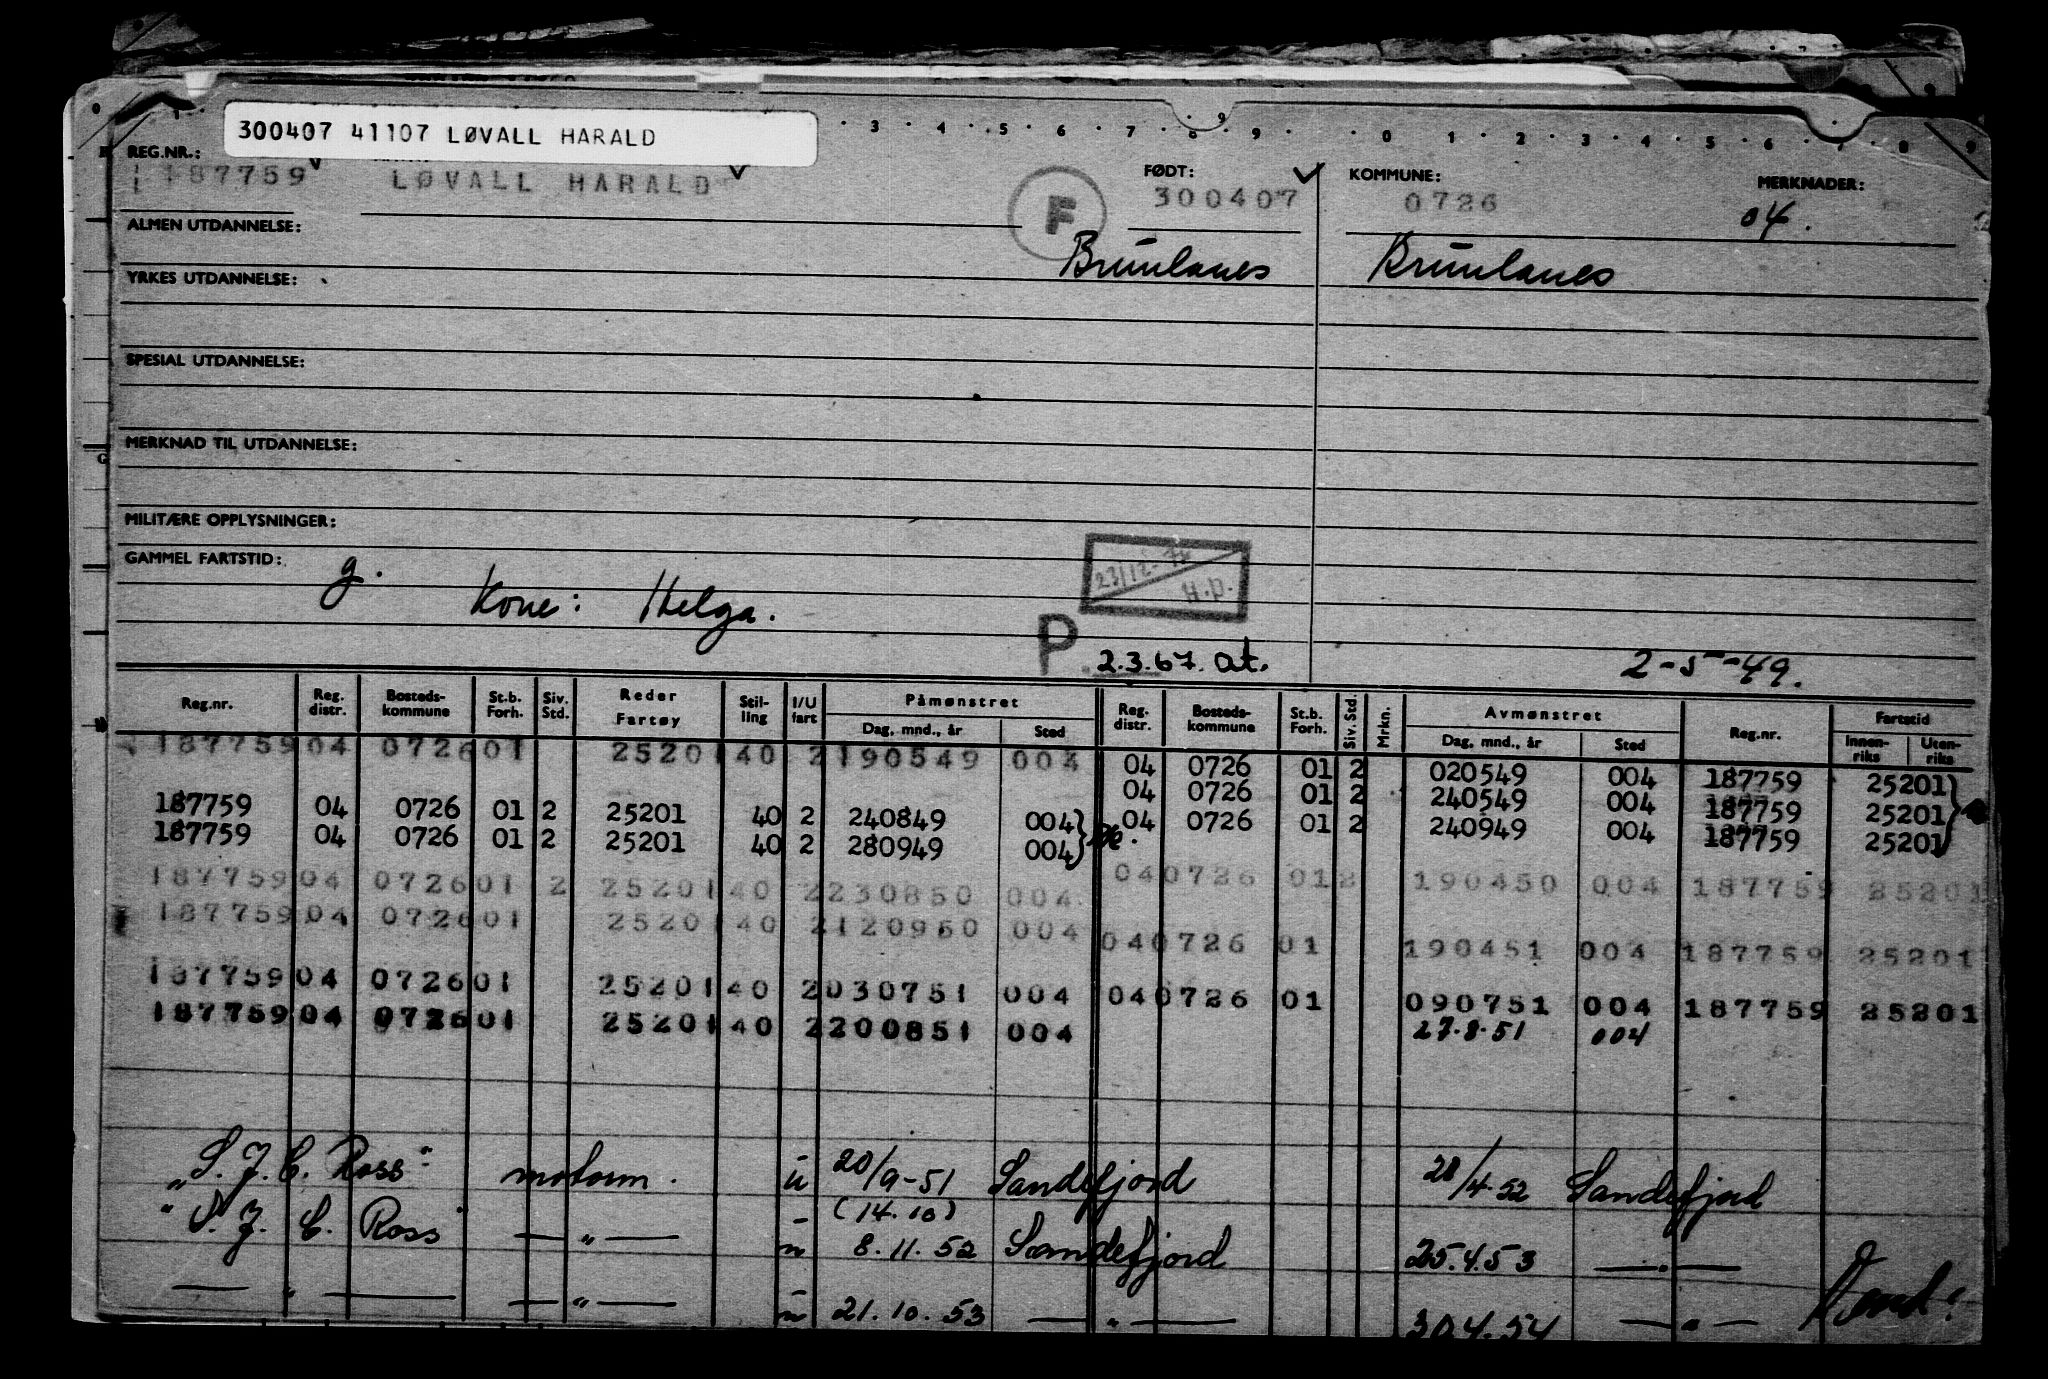 300407 41107 LØVALL HARALD
3 4 5 6 7 8 9 0 1 2 3 4 5 6 7 8 9
REG.NR.: FØDT: KOMMUNE: MERKNADER:
187759 LØVALL HARALD F 300407 0726 04.
ALMEN UTDANNELSE: Brunlanes Brunlanes
YRKES UTDANNELSE:
SPESIAL UTDANNELSE:
MERKNAD TIL UTDANNELSE:
MILITÆRE OPPLYSNINGER:
GAMMEL FARTSTID: g.
Kone: Helga.
H.p.
P 2.3.67. at. 2-5-49.
Reg.nr. Reg. distr. Bosteds-kommune St.b. Forh. Siv. Std. Reder Fartøy Stil-ling I/U fart Påmønstret Reg. distr. Bosteds-kommune St.b. Forh. Siv. Std. Mrkn. Avmønstret Reg.nr. Fartstid
Dag, mnd., år Sted Dag, mnd., år Sted Innen-riks Uten-riks
187759 04 0726 01 25201 40 2 190549 004 04 0726 01 2 020549 004 187759 25201
04 0726 01 2 240549 004 187759 25201
187759 04 0726 01 2 25201 40 2 240849 004 04 0726 01 2 240949 004 187759 25201
187759 04 0726 01 2 25201 40 2 280949 004
187759 04 0726 01 2 25201 40 2 230850 004 04 0726 01 2 190450 004 187759 25201
187759 04 0726 01 25201 40 2 120950 004 04 0726 01 190451 004 187759 25201
187759 04 0726 01 25201 40 2 030751 004 04 0726 01 090751 004 187759 25201
187759 04 0726 01 25201 40 2 200851 004 27.8.51 004
"S. J. C. Ross" motorm. u 20/9-51 Sandefjord 28/4.52 Sandefjord
(14.10)
"S. J. C. Ross" — " — u 8.11.52 Sandefjord 25.4.53 — " —
— " — — " — u 21.10.53 — " — 30.4.54 — " — Vend!